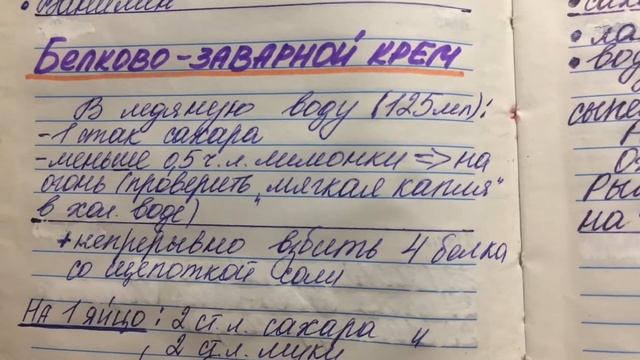 • Ванилин
Белково-заварной крем
В ледяную воду (125мл):
- 1 стак сахара
- меньше 0,5 ч.л. лимонки => на
огонь (проверить "мягкая капля"
в хол. воде)
+ непрерывно вбить 4 белка
со щепоткой соли
На 1 яйцо: 2 ст.л. сахара и
2 ст.л. муки
• ла
• вод
сыпе
Рыв
на